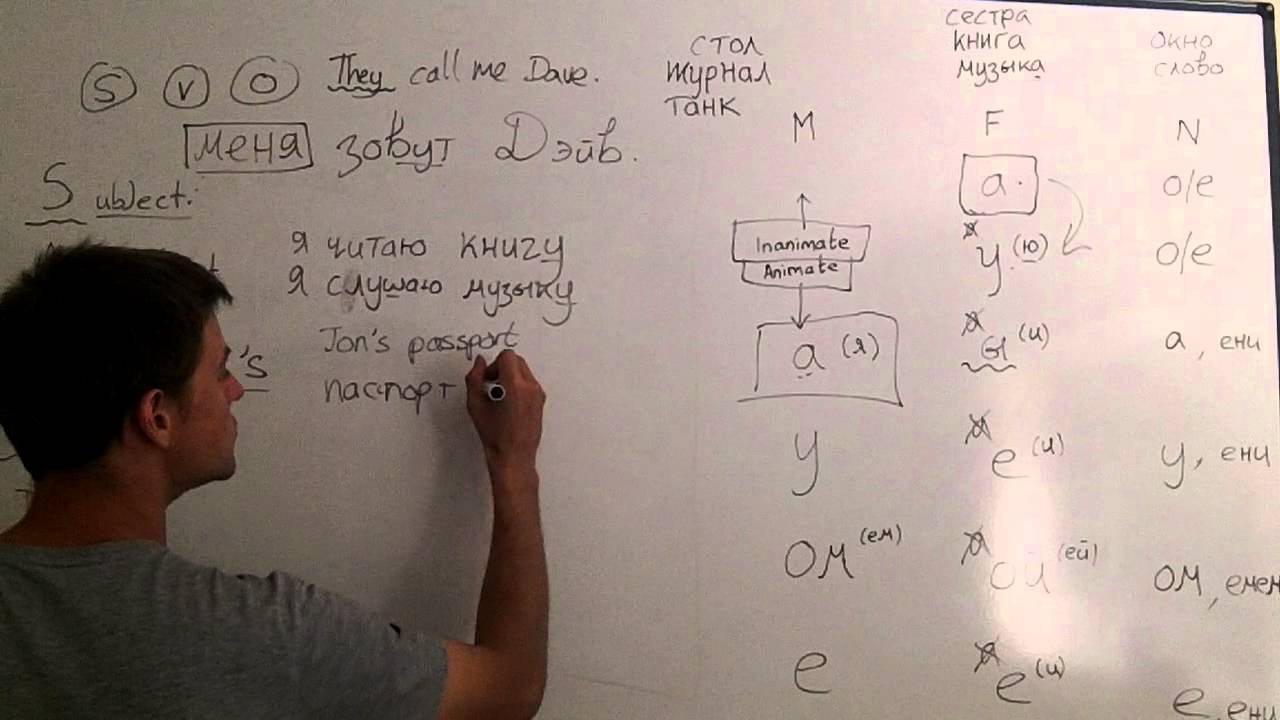 S V O They call me Dave.
меня зовут Дэйв.
Subject:
Я читаю книгу
Я слушаю музыку
Jon's passport
's
паспорт
стол
журнал
танк
сестра
книга
музыка
окно
слово
M F N
а. о/е
Inanimate
Animate
у (ю) о/е
а (я) ы (и) а, ени
у е (и) у, ени
ом (ем) ой (ей) ом, енем
е е (и) е, ени